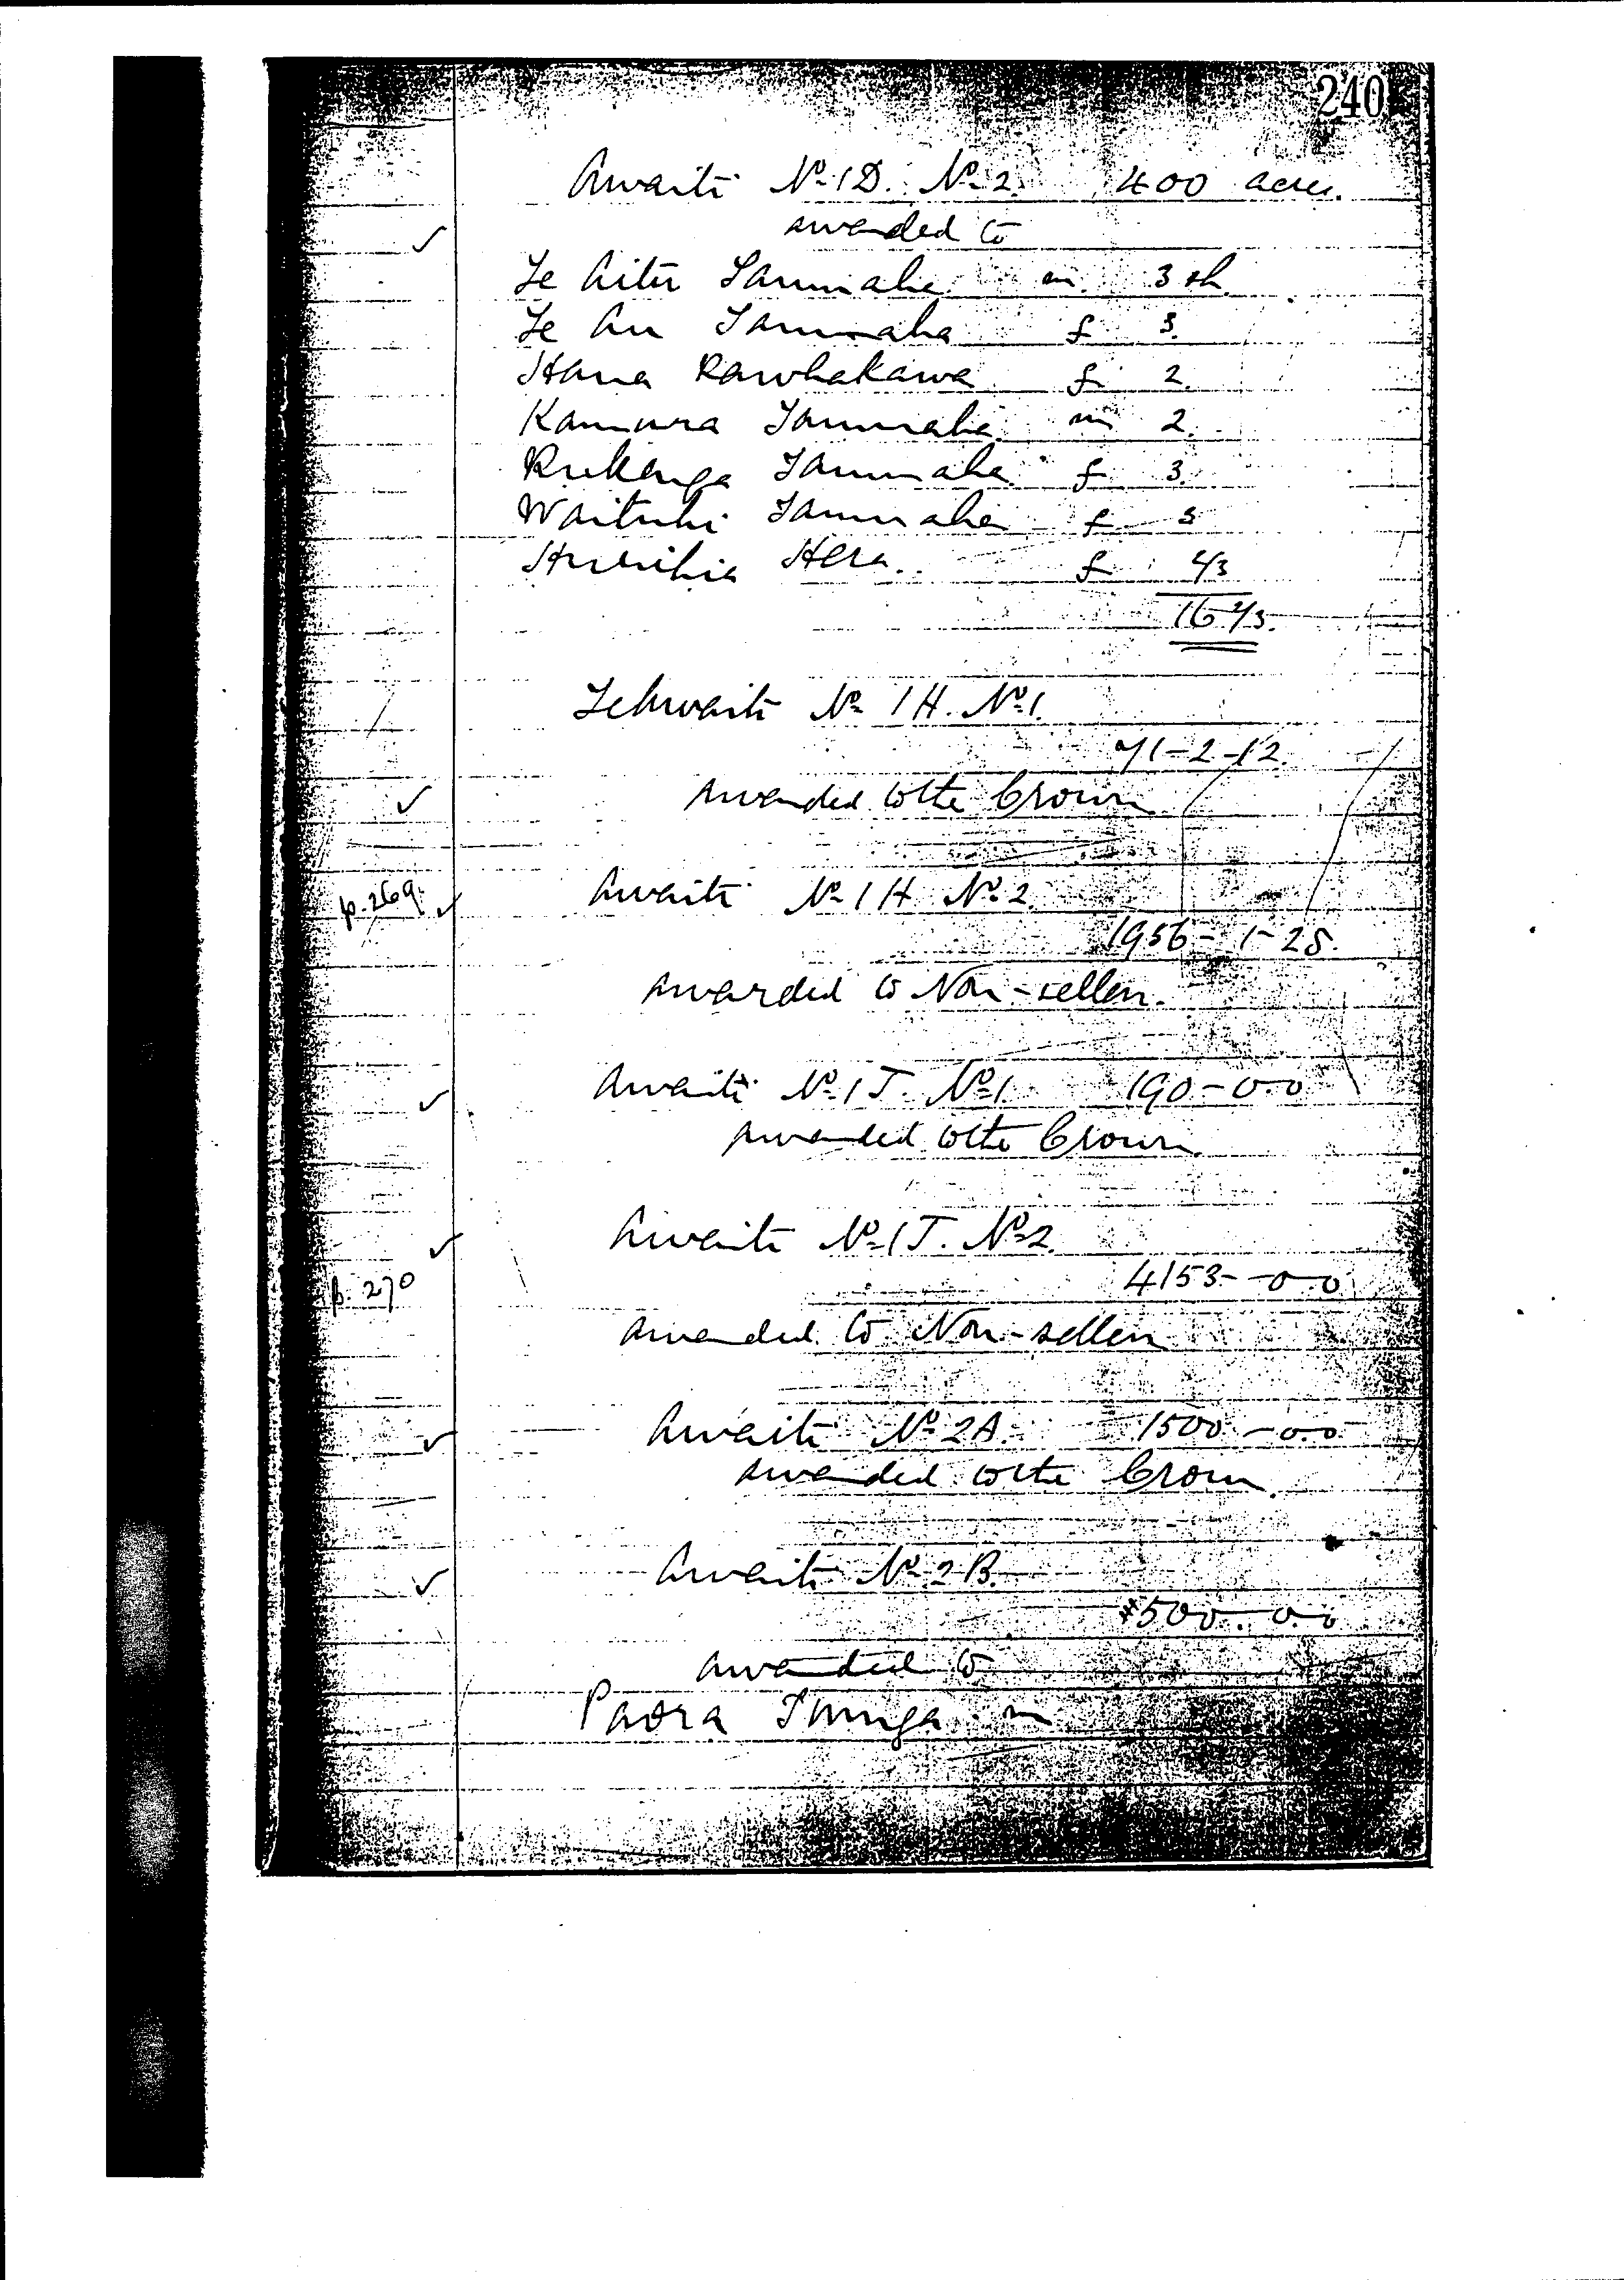 240
Awaiti No 1D. No 2. 400 acres.
awarded to
Te Aitu Taumaha m. 3 sh
Te Au Taumaha f 3.
Hana Rawhakawa f 2.
Kamura Taumaha m 2.
Rukenga Taumaha f 3.
Waituhi Taumaha f 3
Hera. f 2/3
16 2/3.
Te Awaiti No 1H. No 1.
71-2-12.
Awarded to the Crown
p. 269.
Awaiti No 1H No 2.
1956-1-25.
Awarded to Non-sellers.
Awaiti No 1J. No 1 190-0-0
Awarded to the Crown.
Awaiti No 1J. No 2.
p. 270
4153-0-0
Awarded to Non-sellers
Awaiti No 2A. 1500-0-0
Awarded to the Crown.
Awaiti No 2B.
500-0-0
Awarded to
Paora m